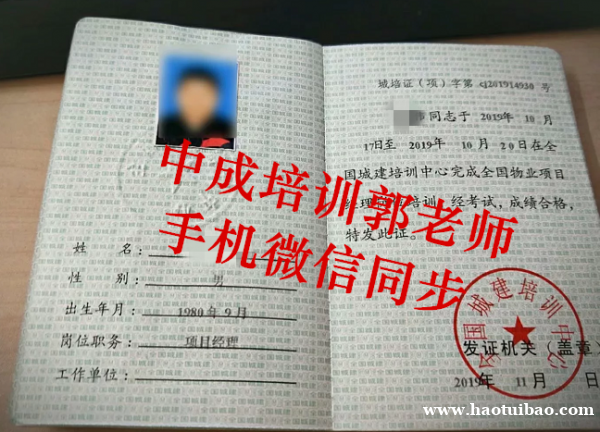 姓 名:
性 别: 男
出生年月: 1980年9月
岗位职务: 项目经理
工作单位:
城培证(项)字第 cj201914930 号
同志于 2019年 10 月
17日至 2019年 10 月 20日在全
国城建培训中心完成全国物业项目
经理 培训,经考试,成绩合格,
特发此证。
全国城建培训中心
发证机关(盖章)
2019年 11月 日
申成培训郭老师
手机微信同步
www.haotuibao.com